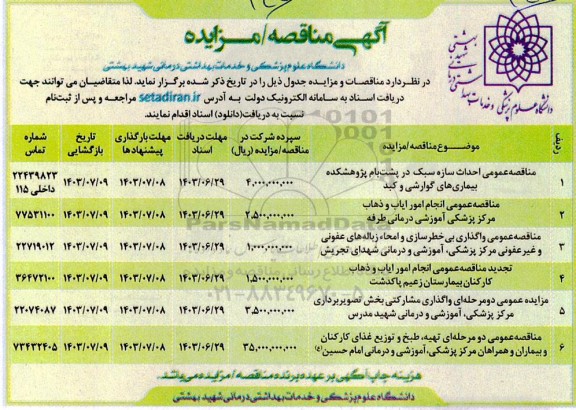 آگهی مناقصه/مزایده
دانشگاه علوم پزشکی و خدمات بهداشتی درمانی شهید بهشتی
در نظر دارد مناقصات و مزایده جدول ذیل را در تاریخ ذکر شده برگزار نماید. لذا متقاضیان می توانند جهت
دریافت اسناد به سامانه الکترونیک دولت به آدرس setadiran.ir مراجعه و پس از ثبت‌نام
نسبت به دریافت(دانلود) اسناد اقدام نمایند.
ردیف موضوع مناقصه/مزایده سپرده شرکت در مناقصه/مزایده (ریال) مهلت دریافت اسناد مهلت بارگذاری پیشنهادها تاریخ بازگشایی شماره تماس
۱ مناقصه عمومی احداث سازه سبک در پشت‌بام پژوهشکده بیماری‌های گوارشی و کبد ۴,۰۰۰,۰۰۰,۰۰۰ ۱۴۰۳/۰۶/۲۹ ۱۴۰۳/۰۷/۰۸ ۱۴۰۳/۰۷/۰۹ ۲۲۴۳۹۸۲۳ داخلی ۱۱۵
۲ مناقصه‌عمومی انجام امور ایاب و ذهاب مرکز پزشکی آموزشی درمانی طرفه ۲,۵۰۰,۰۰۰,۰۰۰ ۱۴۰۳/۰۶/۲۹ ۱۴۰۳/۰۷/۰۸ ۱۴۰۳/۰۷/۰۹ ۷۷۵۳۱۱۰۰
۳ مناقصه‌عمومی واگذاری بی‌خطرسازی و امحاء زباله‌های عفونی و غیرعفونی مرکز پزشکی، آموزشی و درمانی شهدای تجریش ۱,۰۰۰,۰۰۰,۰۰۰ ۱۴۰۳/۰۶/۲۹ ۱۴۰۳/۰۷/۰۸ ۱۴۰۳/۰۷/۰۹ ۲۲۷۱۹۰۱۲
۴ تجدید مناقصه‌عمومی انجام امور ایاب و ذهاب کارکنان بیمارستان زعیم پاکدشت ۱,۵۰۰,۰۰۰,۰۰۰ ۱۴۰۳/۰۶/۲۹ ۱۴۰۳/۰۷/۰۸ ۱۴۰۳/۰۷/۰۹ ۳۶۴۷۲۱۰۰
۵ مزایده عمومی دومرحله‌ای واگذاری مشارکتی بخش تصویربرداری مرکز پزشکی، آموزشی و درمانی شهید مدرس ۳,۵۰۰,۰۰۰,۰۰۰ ۱۴۰۳/۰۶/۲۹ ۱۴۰۳/۰۷/۰۸ ۱۴۰۳/۰۷/۰۹ ۲۲۰۷۴۰۸۷
۶ مناقصه‌عمومی دو مرحله‌ای تهیه، طبخ و توزیع غذای کارکنان و بیماران و همراهان مرکز پزشکی، آموزشی و درمانی امام حسین(ع) ۳۵,۰۰۰,۰۰۰,۰۰۰ ۱۴۰۳/۰۶/۲۹ ۱۴۰۳/۰۷/۰۸ ۱۴۰۳/۰۷/۰۹ ۷۳۴۳۲۴۰۵
هزینه چاپ آگهی بر عهده برنده مناقصه/مزایده می‌باشد.
دانشگاه علوم پزشکی و خدمات بهداشتی درمانی شهید بهشتی
ParsNamadData
۰۲۱-۸۸۳۴۹۶۷۰-۵